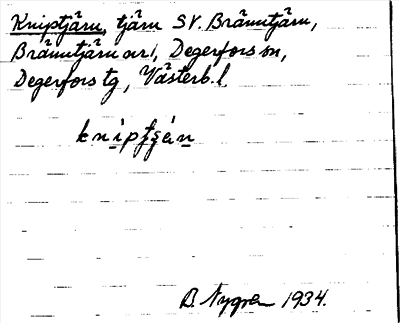 Kniptjärn, tjärn SV. Bränntjärn,
Bränntjärn avs!, Degerfors sn,
Degerfors tg, Västerb. l.
B. Nygren 1934.